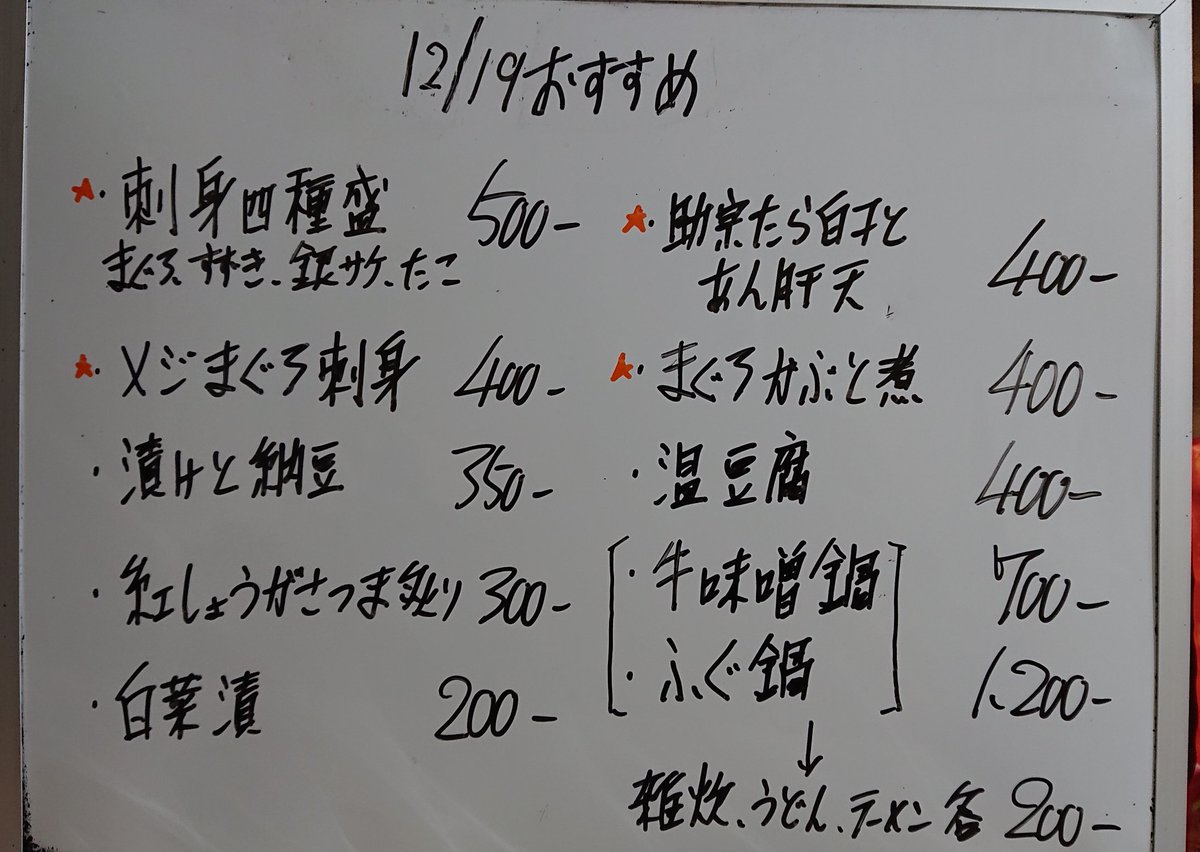 12/19おすすめ
★・刺身四種盛 500-
まぐろ、すずき、銀サケ、たこ
★・メジまぐろ刺身 400-
・漬けと納豆 350-
・紅しょうがさつま炙り 300-
・白菜漬 200-
★・助宗たら白子と
あん肝天 400-
★・まぐろかぶと煮 400-
・温豆腐 400-
・牛味噌鍋 700-
・ふぐ鍋 1,200-
↓
雑炊、うどん、ラーメン 各200-